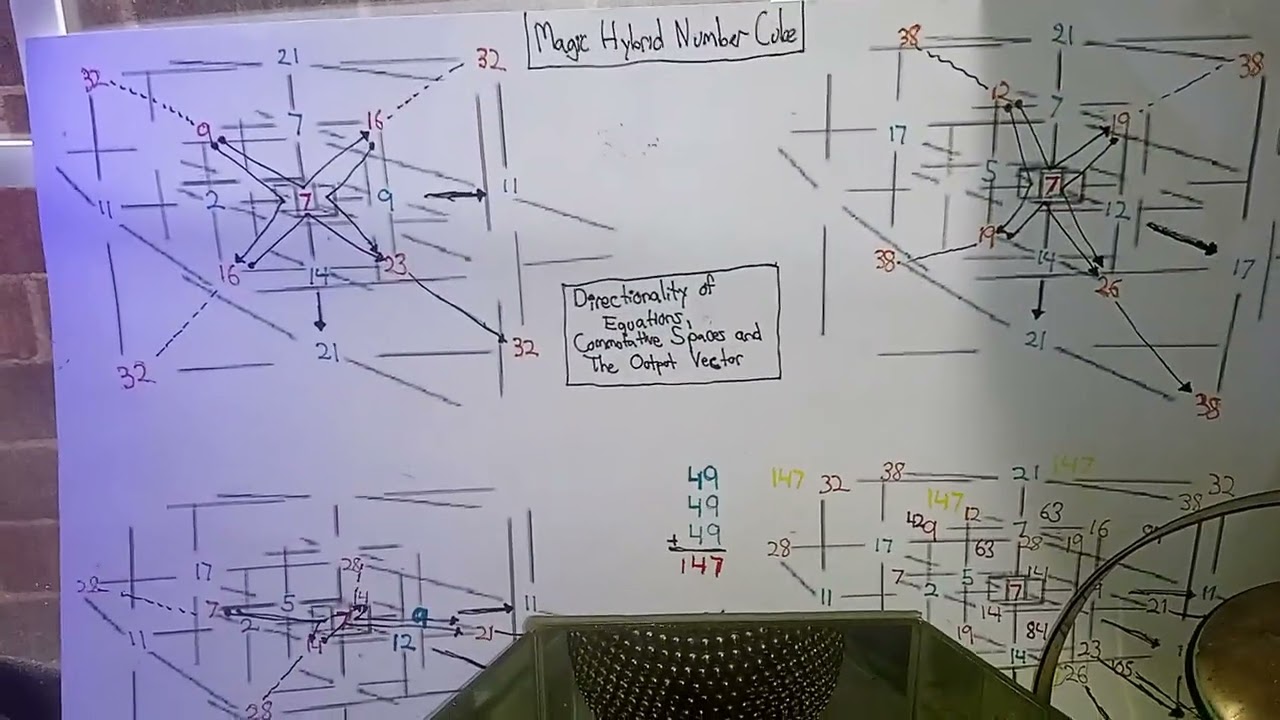 Magic Hybrid Number Cube
21
32
32
9
16
7
2
7
9
11
11
16
14
23
21
32
32
38
21
38
12
7
19
17
5
7
12
19
14
26
38
17
21
38
Directionality of
Equations,
Commutative Spaces and
The Output Vector
49
49
+ 49
147
17
28
28
7
5
14
2
9
11
11
14
12
21
28
147
32
38
21
147
32
38
147
42
9
12
7
63
16
28
17
63
28
19
7
2
5
7
14
11
11
14
21
19
84
14
23
26
105